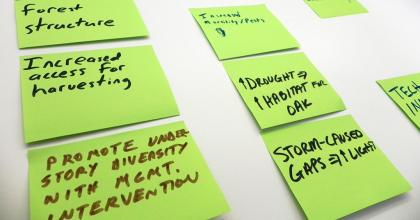 Forest
structure
Increased
access for
harvesting
PROMOTE UNDER-
STORY DIVERSITY
WITH MGMT.
INTERVENTION
Increased
Mortality/Pests
↑DROUGHT ⇒
↑HABITAT FOR
OAK
STORM-CAUSED
GAPS ⇒ ↑LIGHT
TECH